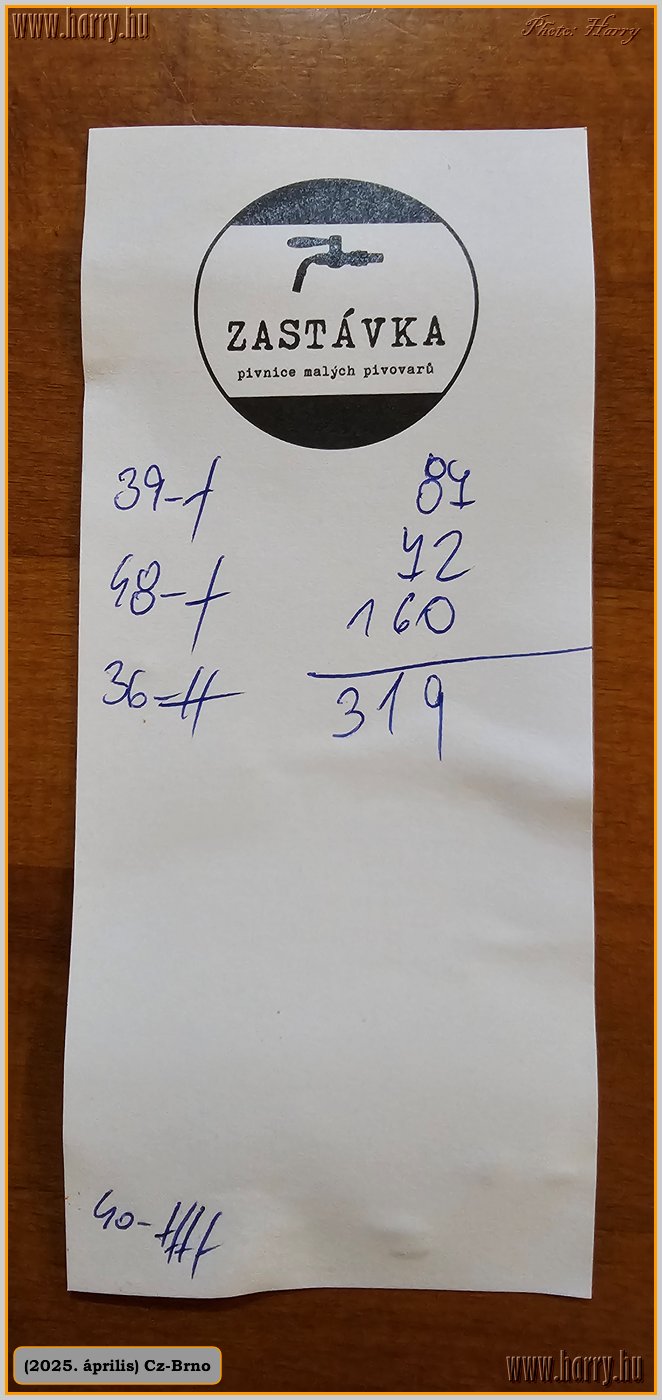 www.harry.hu
Photo: Harry
ZASTÁVKA
pivnice malých pivovarů
39-/ 87
48-/ 72
160
36-// 319
40-////
(2025. április) Cz-Brno
www.harry.hu